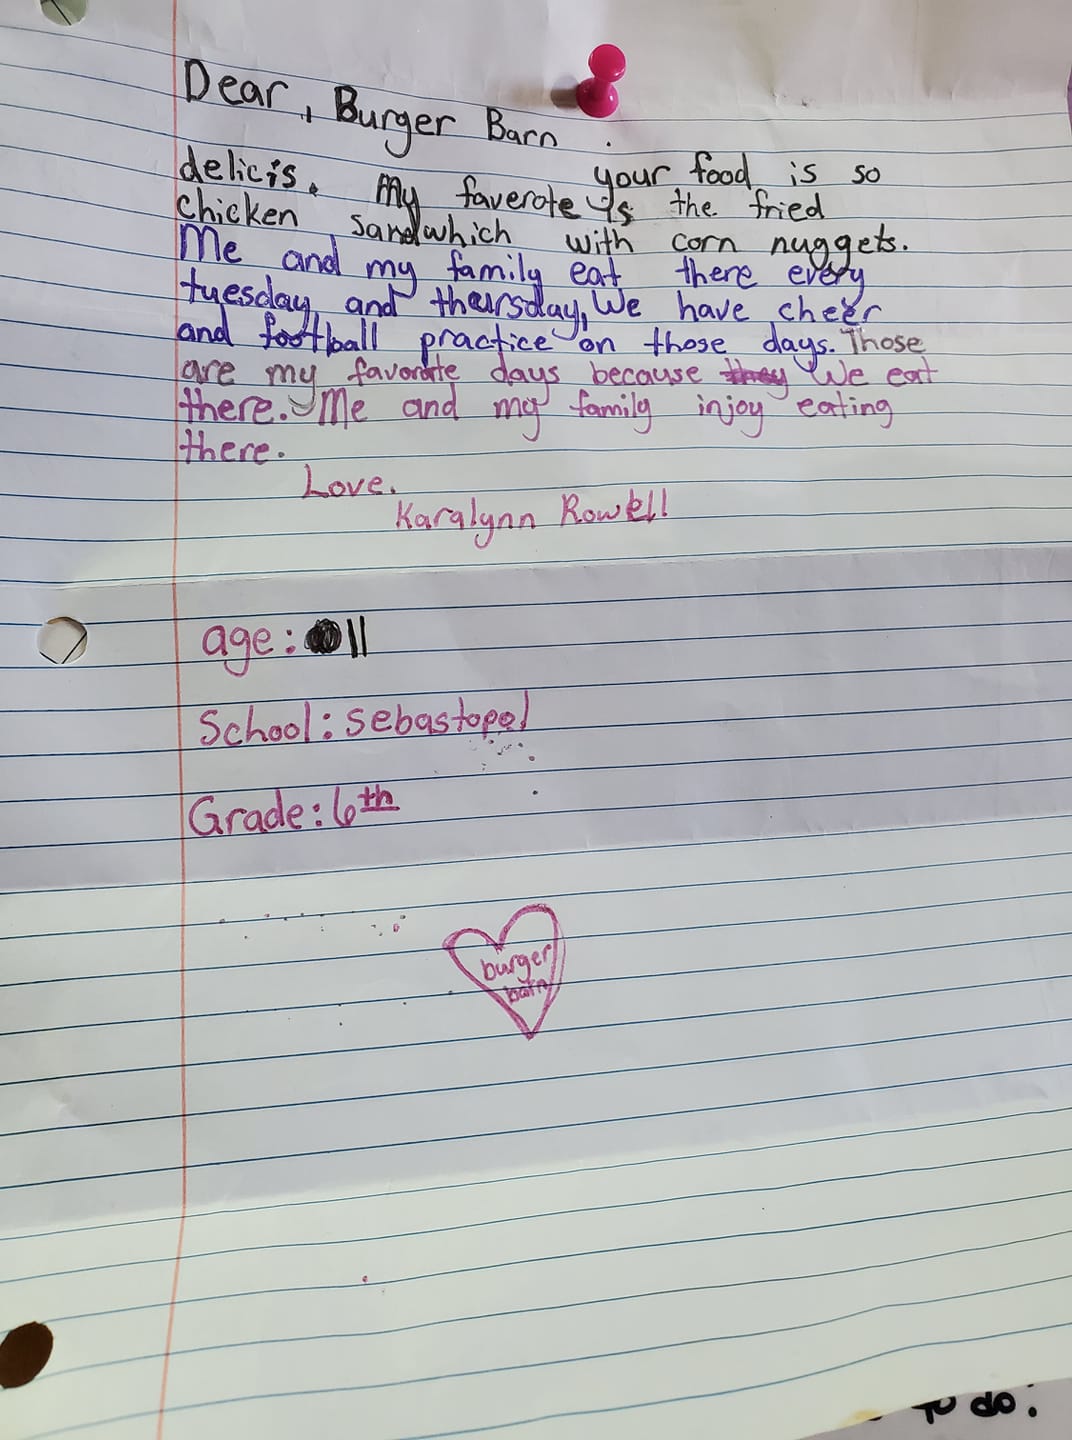 Dear, Burger Barn
your food is so
delicis. My faverote is the fried
chicken sandwhich with corn nuggets.
Me and my family eat there every
tuesday and thursday, We have cheer
and football practice on those days. Those
are my favorite days because they We eat
there. Me and my family injoy eating
there.
Love.
Karalynn Rowell
age: 11
School: Sebastopol
Grade: 6th
burger
barn
To do: